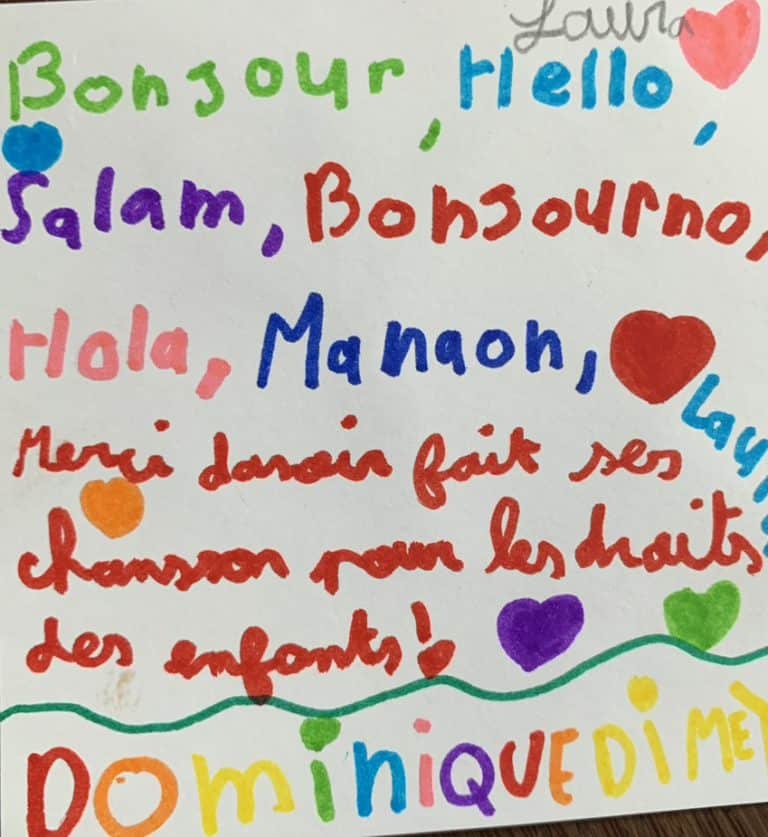 Laura
Bonjour, Hello,
Salam, Bonjourno,
Hola, Manaon,
Merci davoir fait ses
chansson pour les droits
des enfants!
DOMiniQUE DiMEY